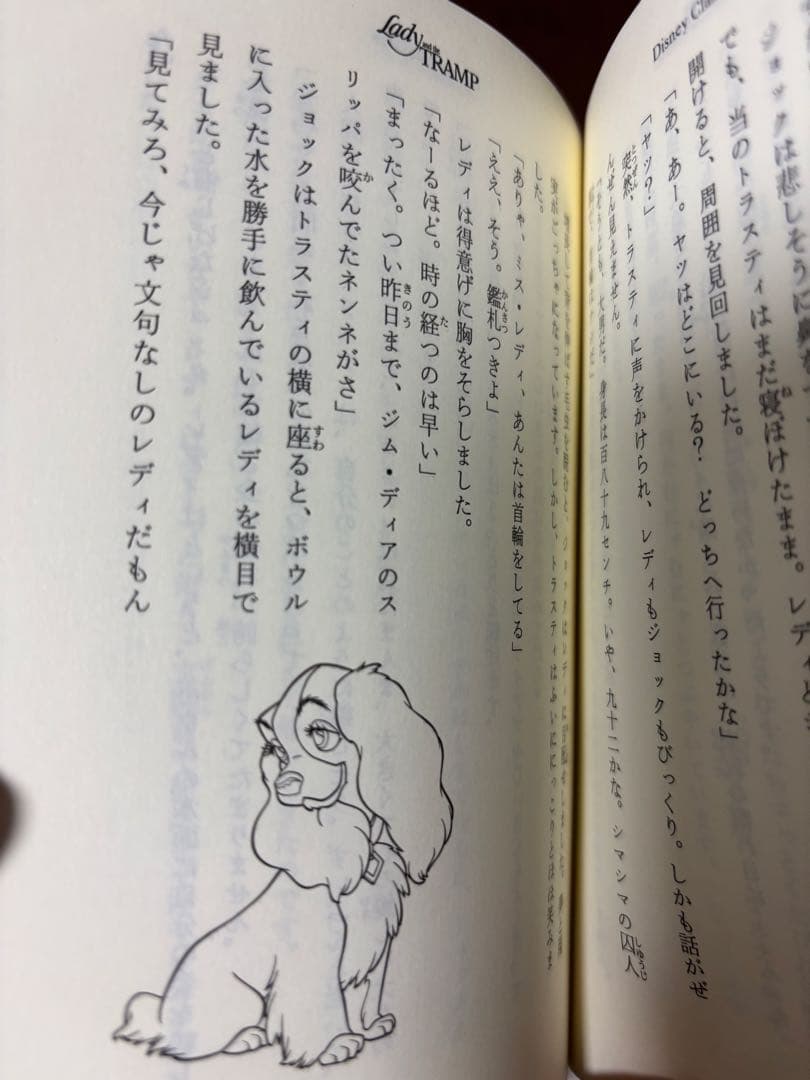 Disney
ジョックは悲しそうに
でも、当のトラスティはまだ寝ぼけたまま。レディと
開けると、周囲を見回しました。
「あ、あー。ヤツはどこにいる? どっちへ行ったかな」
「ヤツ?」
突然、トラスティに声をかけられ、レディもジョックもびっくり。しかも話がぜ
んぜん見えません。
身長は百八十九センチ。いや、九十二かな。シマシマの囚人
Lady and the TRAMP
ごっちゃになっています。しかし、トラスティはふいににっこりとほほ笑みま
した。
「ありゃ、ミス・レディ、あんたは首輪をしてる」
「ええ、そう。鑑札つきよ」
レディは得意げに胸をそらしました。
「なーるほど。時の経つのは早い」
「まったく。つい昨日まで、ジム・ディアのス
リッパを咬んでたネンネがさ」
ジョックはトラスティの横に座ると、ボウル
に入った水を勝手に飲んでいるレディを横目で
見ました。
「見てみろ、今じゃ文句なしのレディだもん